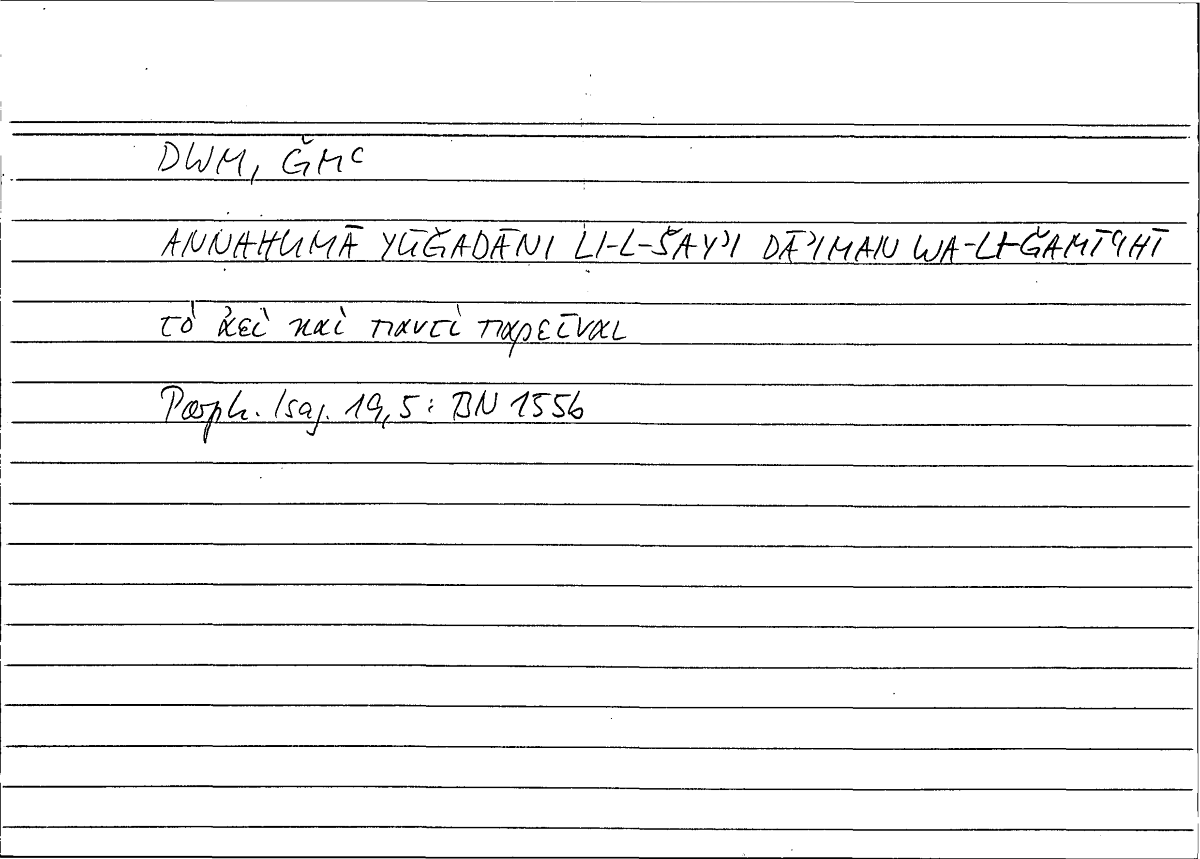 DWM, ǦMʿ
ANNAHUMĀ YŪǦADĀNI LI-L-ŠAYʾI DĀʾIMAN WA-LI-ǦAMĪʿIHĪ
τὸ ἀεὶ καὶ παντὶ παρεῖναι
Porph. Isag. 19,5: BN 155b